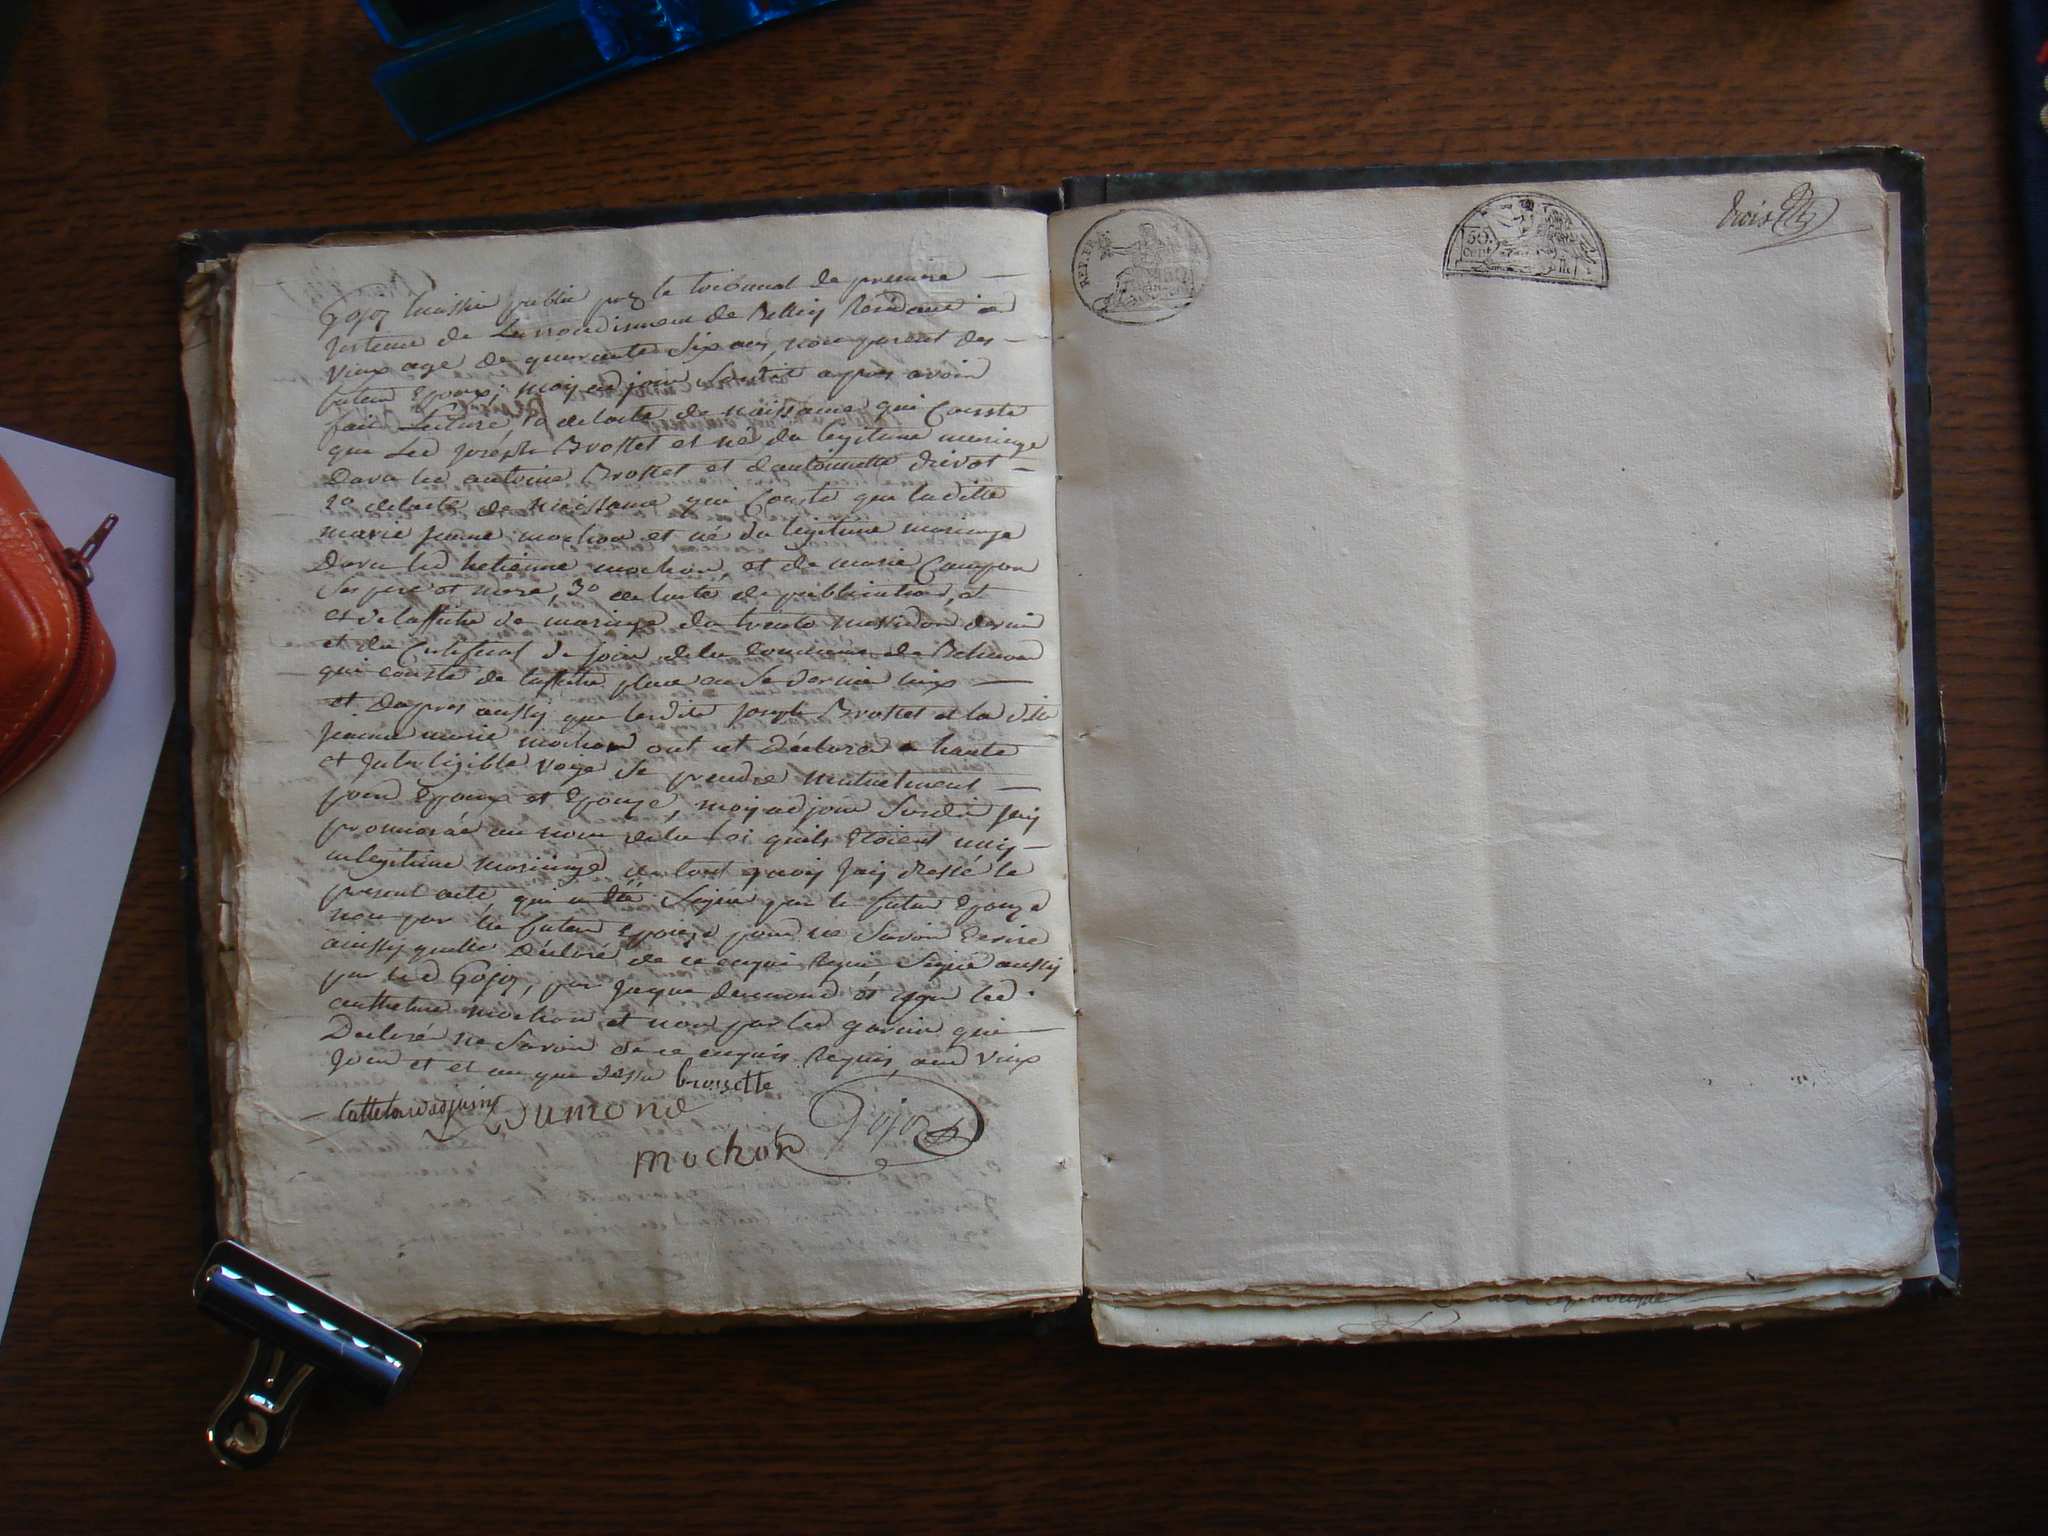 Gojoz huissie public prez le tribunal de premiere
Jnstence de Larrondissement de Belley Residant a
Vieux age de quarente Six ans, non parent des
futeur Epoux; moy adjoin Susdit apres avoir
fait Lecture, 1º de lacte de naissance qui Conste
que Led joseph Brosset et né du legitime mariage
Davu led antoine Brosset et dantoinette
2º de lacte de naissance qui Conste que laditte
marie jeanne mochon et né du legitime mariage
Davu led hetienne mochon, et de marie Campon
Ses pere et mere, 3º de lacte de publication, et
et de laffiche de mariage du trente messidor dernie
et du Certificat de join de la Commune de
qui conste de laffiche place au Se dernie lieux
et Dapres aussy que lesdits joseph Brosset et la ditte
jeanne marie mochon ont et Déclaré a haute
et Jntelligible voye Se prendre mutuelment
pour Epoux et Epouze, moy adjoin Susdit jay
prononcé au nom de la Loi quils Etoient unis
en legitime mariage de tout quoy Jay dressé le
present acte, qui a été Signé par le futeur Epouze
non par la futeur Epouze, pour ne Savoir Ecrire
ainssy quelle Déclaré de ce enquis Requi Signé aussy
par led Gojoz, par Jaque dumond et par led
mochon, et non par led garin qui
Declaré ne Savoir de ce enquis Requis, aud Vieux
Jour et et an que dessu brossette
Cattelard adjoint Dumond Gojoz
mochon
REP. FRA.
trois
50.
CENT